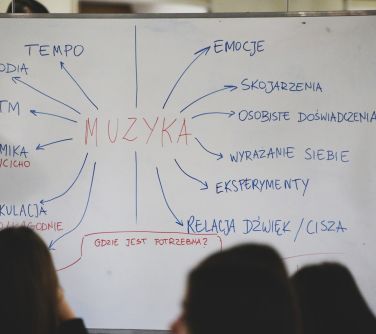 TEMPO
ODIA
TM
MIKA
CICHO
KULACJA
ŁAGODNIE
MUZYKA
EMOCJE
SKOJARZENIA
OSOBISTE DOŚWIADCZENIA
WYRAŻANIE SIEBIE
EKSPERYMENTY
RELACJA DŹWIĘK/CISZA
GDZIE JEST POTRZEBNA?